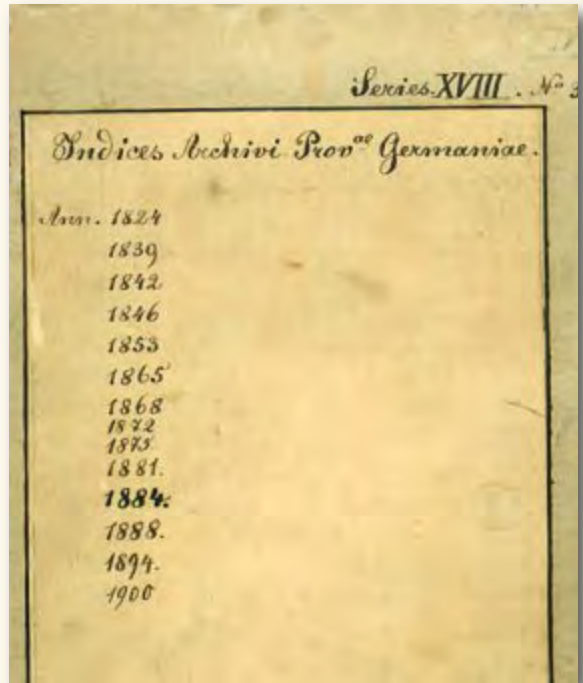 Series XVIII. Nº 3
Indices Archivi Provᵃᵉ Germaniae.
Ann. 1824
1839
1842
1846
1853
1865
1868
1872
1875
1881.
1884.
1888.
1894.
1900